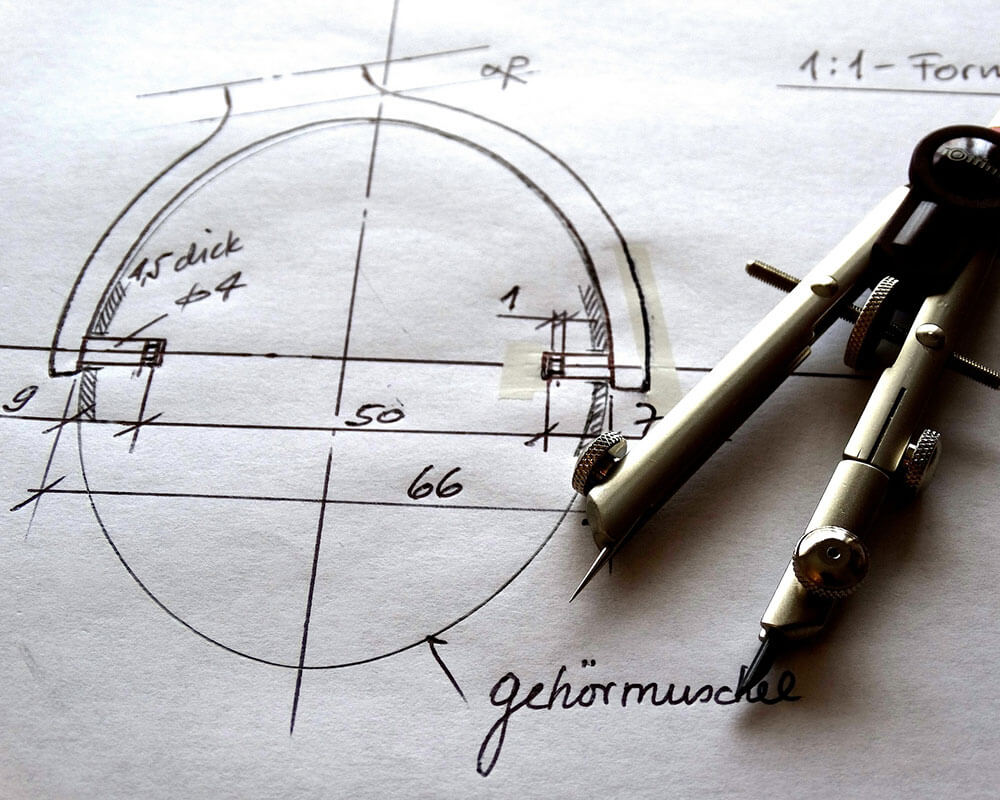 1:1-Form
1,5 dick
ø4
1
9
50
7
66
gehörmuschel